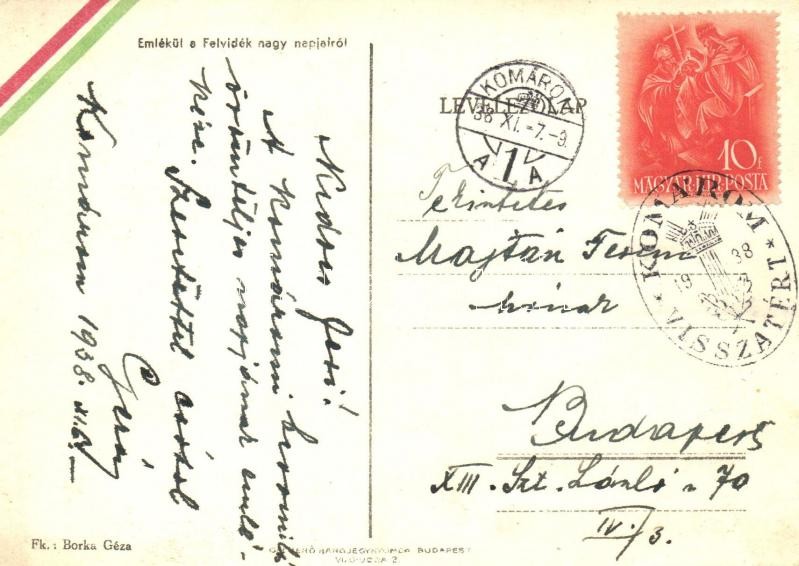 Emlékül a Felvidék nagy napjairól
Kedves Jenő!
A komáromi bevonulás
örömteljes napjának emlé-
kére. Szeretettel csókol
Géza
Komárom 1938. XI. 6.
Fk.: Borka Géza
LEVELEZŐLAP
KOMÁROM
38 XI. -7. -9.
A 1 A
10 f
MAGYAR·KIR·POSTA
* KOMÁROM * VISSZATÉRT
19 38
Tekintetes
Majtán Ferenc
Budapest
XIII. Szt. László u 70
IV./3.
BUDAPEST